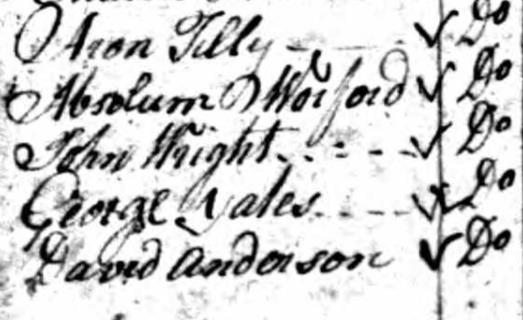 Aron Tilly - - - ✓ Do
Absolum Worford ✓ Do
John Wright - - - - ✓ Do
George Yates - - - ✓ Do
David Anderson ✓ Do